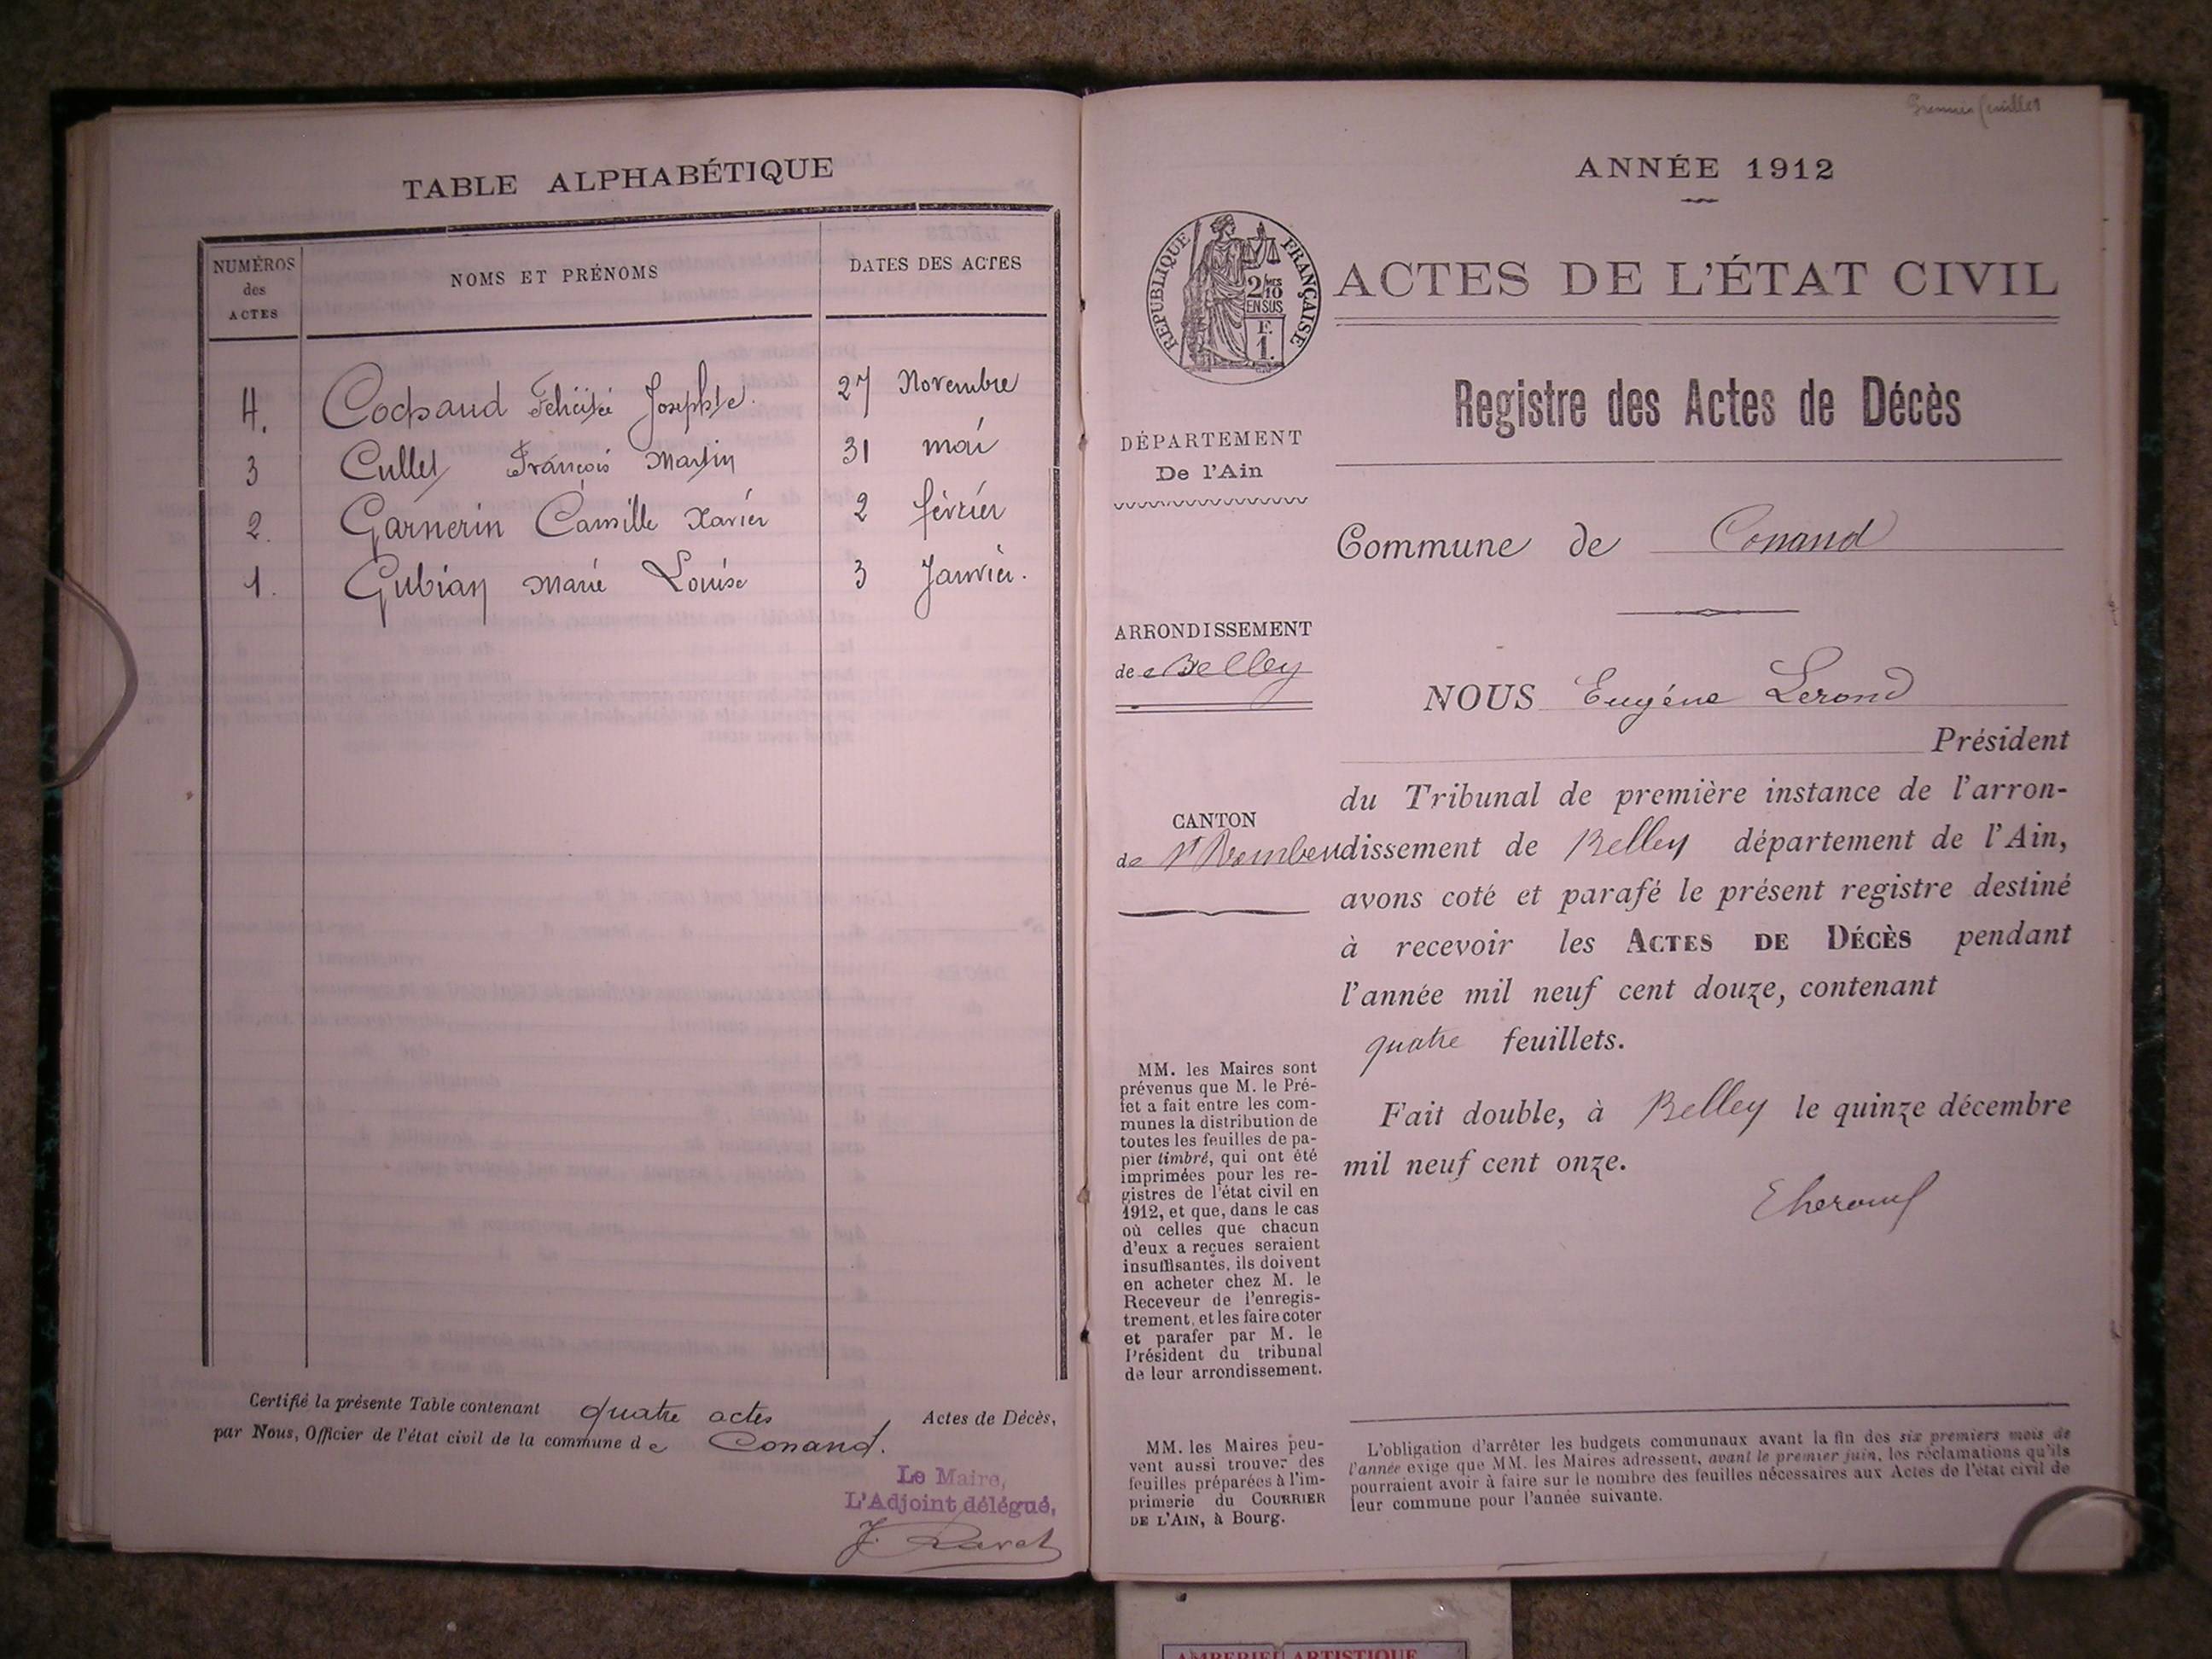 TABLE ALPHABÉTIQUE
NUMÉROS des ACTES NOMS ET PRÉNOMS DATES DES ACTES
4. Cochaud Félicité Josephte. 27 Novembre
3 Cullet François Martin 31 mai
2. Garnerin Camille Xavier 2 février
1. Gubian Marie Louise 3 Janvier.
Certifié la présente Table contenant quatre actes Actes de Décès,
par Nous, Officier de l'état civil de la commune de Conand.
Le Maire,
L'Adjoint délégué,
J. Ravet
Premier feuillet
ANNÉE 1912
RÉPUBLIQUE FRANÇAISE
2/10 MES
EN SUS
F.
1.
ACTES DE L'ÉTAT CIVIL
Registre des Actes de Décès
DÉPARTEMENT
De l'Ain
ARRONDISSEMENT
de Belley
CANTON
de St Rambert
Commune de Conand
NOUS Eugène Lerond
Président
du Tribunal de première instance de l'arron-
dissement de Belley département de l'Ain,
avons coté et parafé le présent registre destiné
à recevoir les ACTES DE DÉCÈS pendant
l'année mil neuf cent douze, contenant
quatre feuillets.
Fait double, à Belley le quinze décembre
mil neuf cent onze.
MM. les Maires sont
prévenus que M. le Pré-
fet a fait entre les com-
munes la distribution de
toutes les feuilles de pa-
pier timbré, qui ont été
imprimées pour les re-
gistres de l'état civil en
1912, et que, dans le cas
où celles que chacun
d'eux a reçues seraient
insuffisantes, ils doivent
en acheter chez M. le
Receveur de l'enregis-
trement, et les faire coter
et parafer par M. le
Président du tribunal
de leur arrondissement.
MM. les Maires peu-
vent aussi trouver des
feuilles préparées à l'im-
primerie du COURRIER
DE L'AIN, à Bourg.
L'obligation d'arrêter les budgets communaux avant la fin des six premiers mois de
l'année exige que MM. les Maires adressent, avant le premier juin, les réclamations qu'ils
pourraient avoir à faire sur le nombre des feuilles nécessaires aux Actes de l'état civil de
leur commune pour l'année suivante.
AMBERIEU ARTISTIQUE